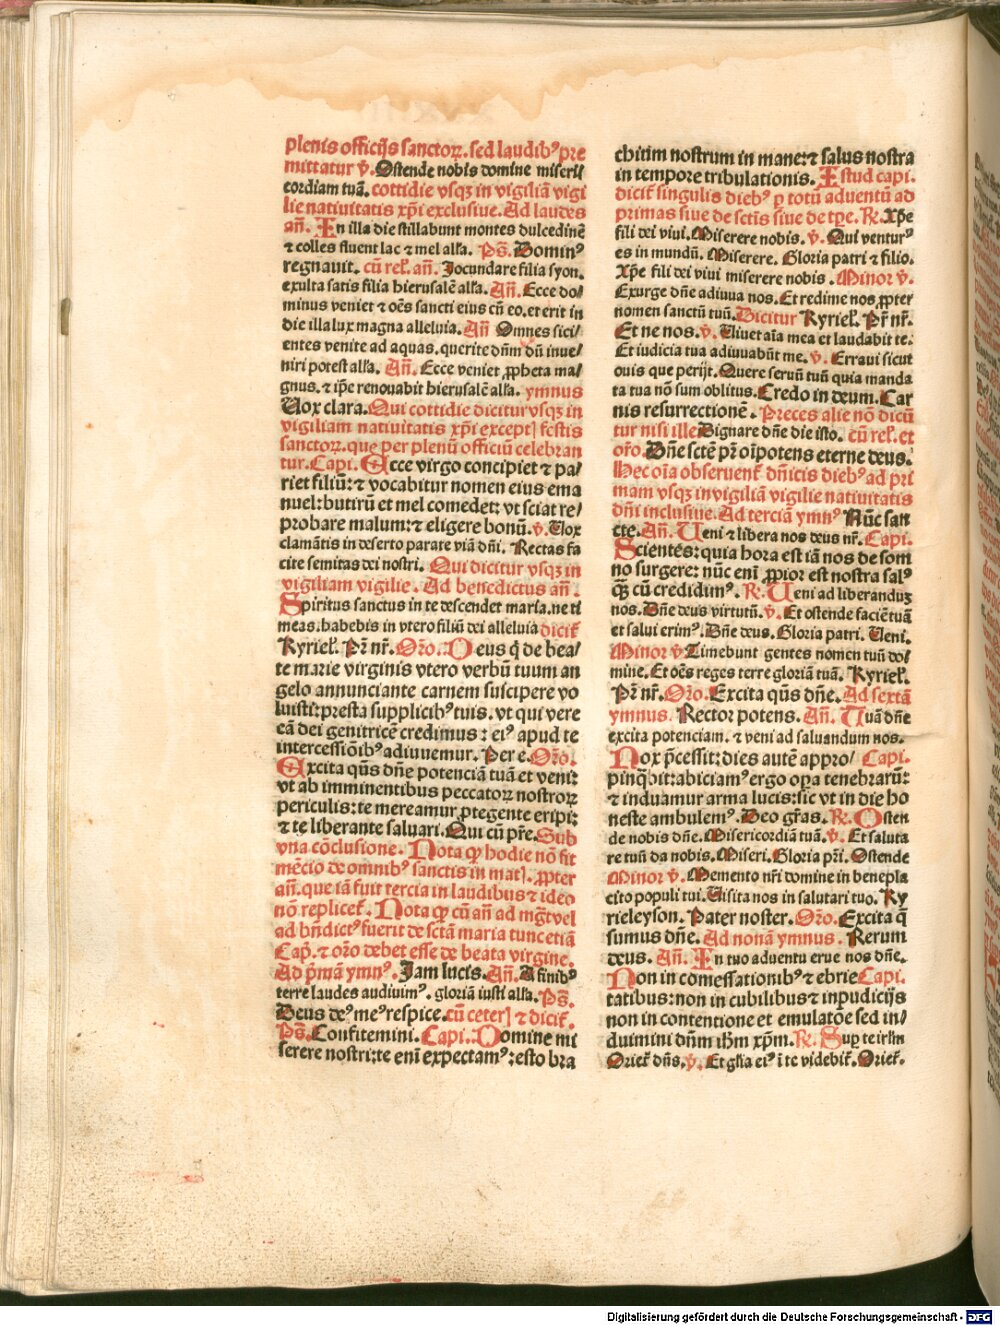 plenis officijs sanctoꝝ. sed laudibꝰ pre
mittatur ℣. Ostende nobis domine miseri/
cordiam tuã. cottidie vsqꝫ in vigiliã vigi
lie natiuitatis xp̃i exclusiue. Ad laudes
añ. In illa die stillabunt montes dulcedinẽ
⁊ colles fluent lac ⁊ mel alľa. Ps̃. Dominꝰ
regnauit. cũ rel̃. añ. Jocundare filia syon.
exulta satis filia hierusalẽ alľa. Añ. Ecce do/
minus veniet ⁊ oẽs sancti eius cũ eo. et erit in
die illa lux magna alleluia. Añ Omnes sici/
entes venite ad aquas. querite dñm dũ inue/
niri potest alľa. Añ. Ecce veniet ꝓpheta ma/
gnus. ⁊ ip̃e renouabit hierusalẽ alľa. ymnus
Uox clara. Qui cottidie dicitur vsqꝫ in
vigiliam natiuitatis xp̃i exceptꝭ festis
sanctoꝝ. que per plenũ officiũ celebran
tur. Capi. Ecce virgo concipiet ⁊ pa/
riet filiũ: ⁊ vocabitur nomen eius ema
nuel: butirũ et mel comedet: vt sciat re/
probare malum: ⁊ eligere bonũ. ℣. Uox
clamãtis in deserto parate viã dñi. Rectas fa
cite semitas dei nostri. Qui dicitur vsqꝫ in
vigiliam vigilie. Ad benedictus añ.
Spiritus sanctus in te descendet maria. ne ti
meas. habebis in vtero filiũ dei alleluia dicit̃
Kyriel̃. Pr̃ nr̃. Oꝛo. Deus q̇ de bea/
te marie virginis vtero verbũ tuum an
gelo annunciante carnem suscipere vo
luisti: presta supplicibꝰ tuis. vt qui vere
eã dei genitricẽ credimus: eiꝰ apud te
intercessiõibꝰ adiuuemur. Per e. Oꝛo.
Excita q̃s dñe potenciã tuã et veni:
vt ab imminentibus peccatoꝝ nostroꝝ
periculis: te mereamur ꝓtegente eripi:
⁊ te liberante saluari. Qui cũ pr̃e. Sub
vna cõclusione. Nota ꝙ hodie nõ fit
mẽcio de omnibꝰ sanctis in matꝭ. ꝓpter
añ. que iã fuit tercia in laudibus ⁊ ideo
nõ replicet̃. Nota ꝙ cũ añ ad mg̃t vel
ad bñdictꝰ fuerit de sctã maria tunc etiã
Cap̃. ⁊ oꝛo debet esse de beata virgine.
Ad pͥmã ymnꝰ. Jam lucis. Añ. A finibꝰ
terre laudes audiuimꝰ. gloriã iusti alľa. Ps̃.
Deus deꝰ meꝰ respice. cũ ceterꝭ ⁊ dicit̃.
Ps̃. Confitemini. Capi. Domine mi
serere nostri: te eni expectamꝰ: esto bra
chium nostrum in mane: ⁊ salus nostra
in tempore tribulationis. Istud capi.
dicit̃ singulis diebꝰ ꝑ totũ aduentũ ad
primas siue de sctĩs siue de tp̃e. ℟. Xp̃e
fili dei viui. Miserere nobis. ℣. Qui venturꝰ
es in mundũ. Miserere. Gloria patri ⁊ filio.
Xp̃e fili dei viui miserere nobis. Minor ℣.
Exurge dñe adiuua nos. Et redime nos ꝓpter
nomen sanctũ tuũ. Dicitur Kyriel̃. Pr̃ nr̃.
Et ne nos. ℣. Uiuet aĩa mea et laudabit te.
Et iudicia tua adiuuabũt me. ℣. Erraui sicut
ouis que perijt. Quere seruũ tuũ quia manda
ta tua nõ sum oblitus. Credo in deum. Car
nis resurrectionẽ. Preces alie nõ dicũ
tur nisi ille Dignare dñe die isto. cũ rel̃. et
oꝛo. Dñe sctẽ pr̃ oĩpotens eterne deus.
Hec oĩa obseruent̃ dñicis diebꝰ ad pri
mam vsqꝫ in vigiliã vigilie natiuitatis
dñi inclusiue. Ad terciã ymnꝰ Nũc san
cte. Añ. Ueni ⁊ libera nos deus nr̃. Capi.
Scientes: quia hora est iã nos de som
no surgere: nũc enĩ ꝓpior est nostra salꝰ
qͣ̃ cũ credidimꝰ. ℟. Ueni ad liberandũ
nos. Dñe deus virtutũ. ℣. Et ostende faciẽ tuã
et salui erimꝰ. Dñe deus. Gloria patri. Ueni.
Minor ℣ Timebunt gentes nomen tuũ do/
mine. Et oẽs reges terre gloriã tuã. Kyriel̃.
Pr̃ nr̃. Oꝛo. Excita q̃s dñe. Ad sextã
ymnus. Rector potens. Añ. Tuã dñe
excita potenciam. ⁊ veni ad saluandum nos.
Nox p̃cessit: dies autẽ appro/ Capi.
pinq̈bit: abiciamꝰ ergo oꝑa tenebrarũ:
⁊ induamur arma lucis: sic vt in die ho
neste ambulemꝰ. Deo gr̃as. ℟. Osten
de nobis dñe. Misericordiã tuã. ℣. Et saluta
re tuũ da nobis. Miseri. Gloria pr̃i. Ostende
Minor ℣. Memento nr̃i domine in benepla
cito populi tui. Uisita nos in salutari tuo. Ky
rieleyson. Pater noster. Oꝛo. Excita q̃
sumus dñe. Ad nonã ymnus. Rerum
deus. Añ. In tuo aduentu erue nos dñe.
Non in comessationibꝰ ⁊ ebrie Capi.
tatibus: non in cubilibus ⁊ inpudicijs
non in contentione et emulatõe sed in/
duimini dñm ihm̃ xp̃m. ℟. Suꝑ te irl̃m
Oriet̃ dñs. ℣. Et gl̃ia eiꝰ ĩ te videbit̃. Oriet̃.
Digitalisierung gefördert durch die Deutsche Forschungsgemeinschaft - DFG